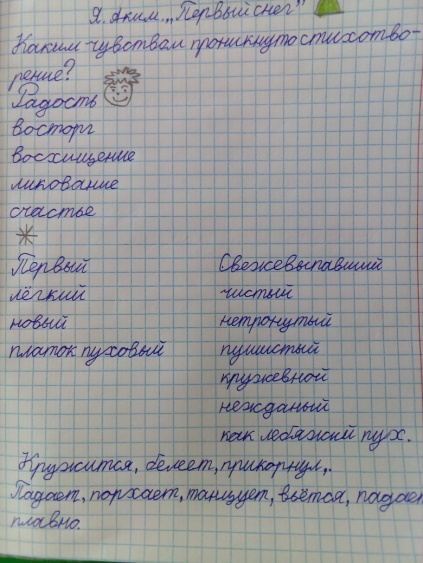 Я. Аким. „Первый снег"
Каким чувством проникнуто стихотво-
рение?
Радость
восторг
восхищение
ликование
счастье
Первый Свежевыпавший
лёгкий чистый
новый нетронутый
платок пуховый пушистый
кружевной
нежданый
как лебяжий пух.
Кружится, белеет, прикорнул,.
Падает, порхает, танцует, вьётся, падает
плавно.